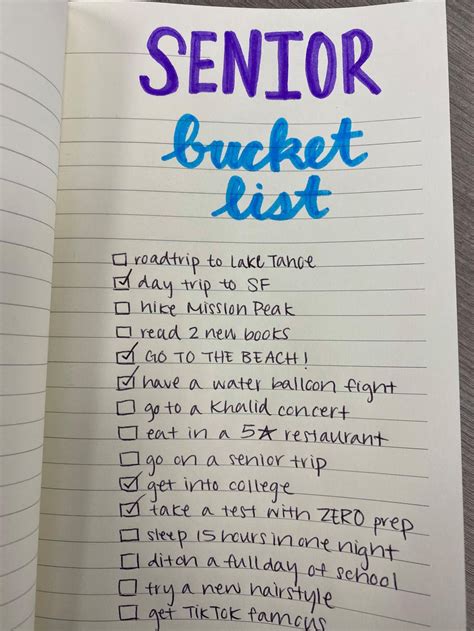 SENIOR
bucket
list
roadtrip to Lake Tahoe
day trip to SF
hike Mission Peak
read 2 new books
GO TO THE BEACH!
have a water balloon fight
go to a Khalid concert
eat in a 5☆ restaurant
go on a senior trip
get into college
take a test with ZERO prep
sleep 15 hours in one night
ditch a full day of school
try a new hairstyle
get TikTok famous